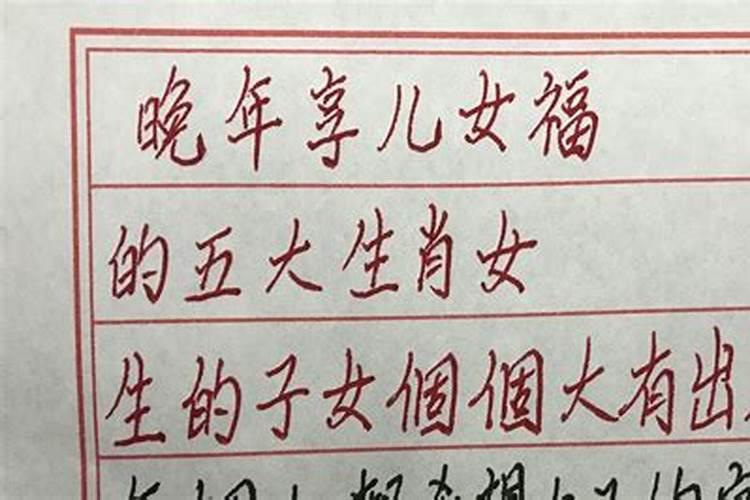 晚年享儿女福
的五大生肖女
生的子女個個大有出